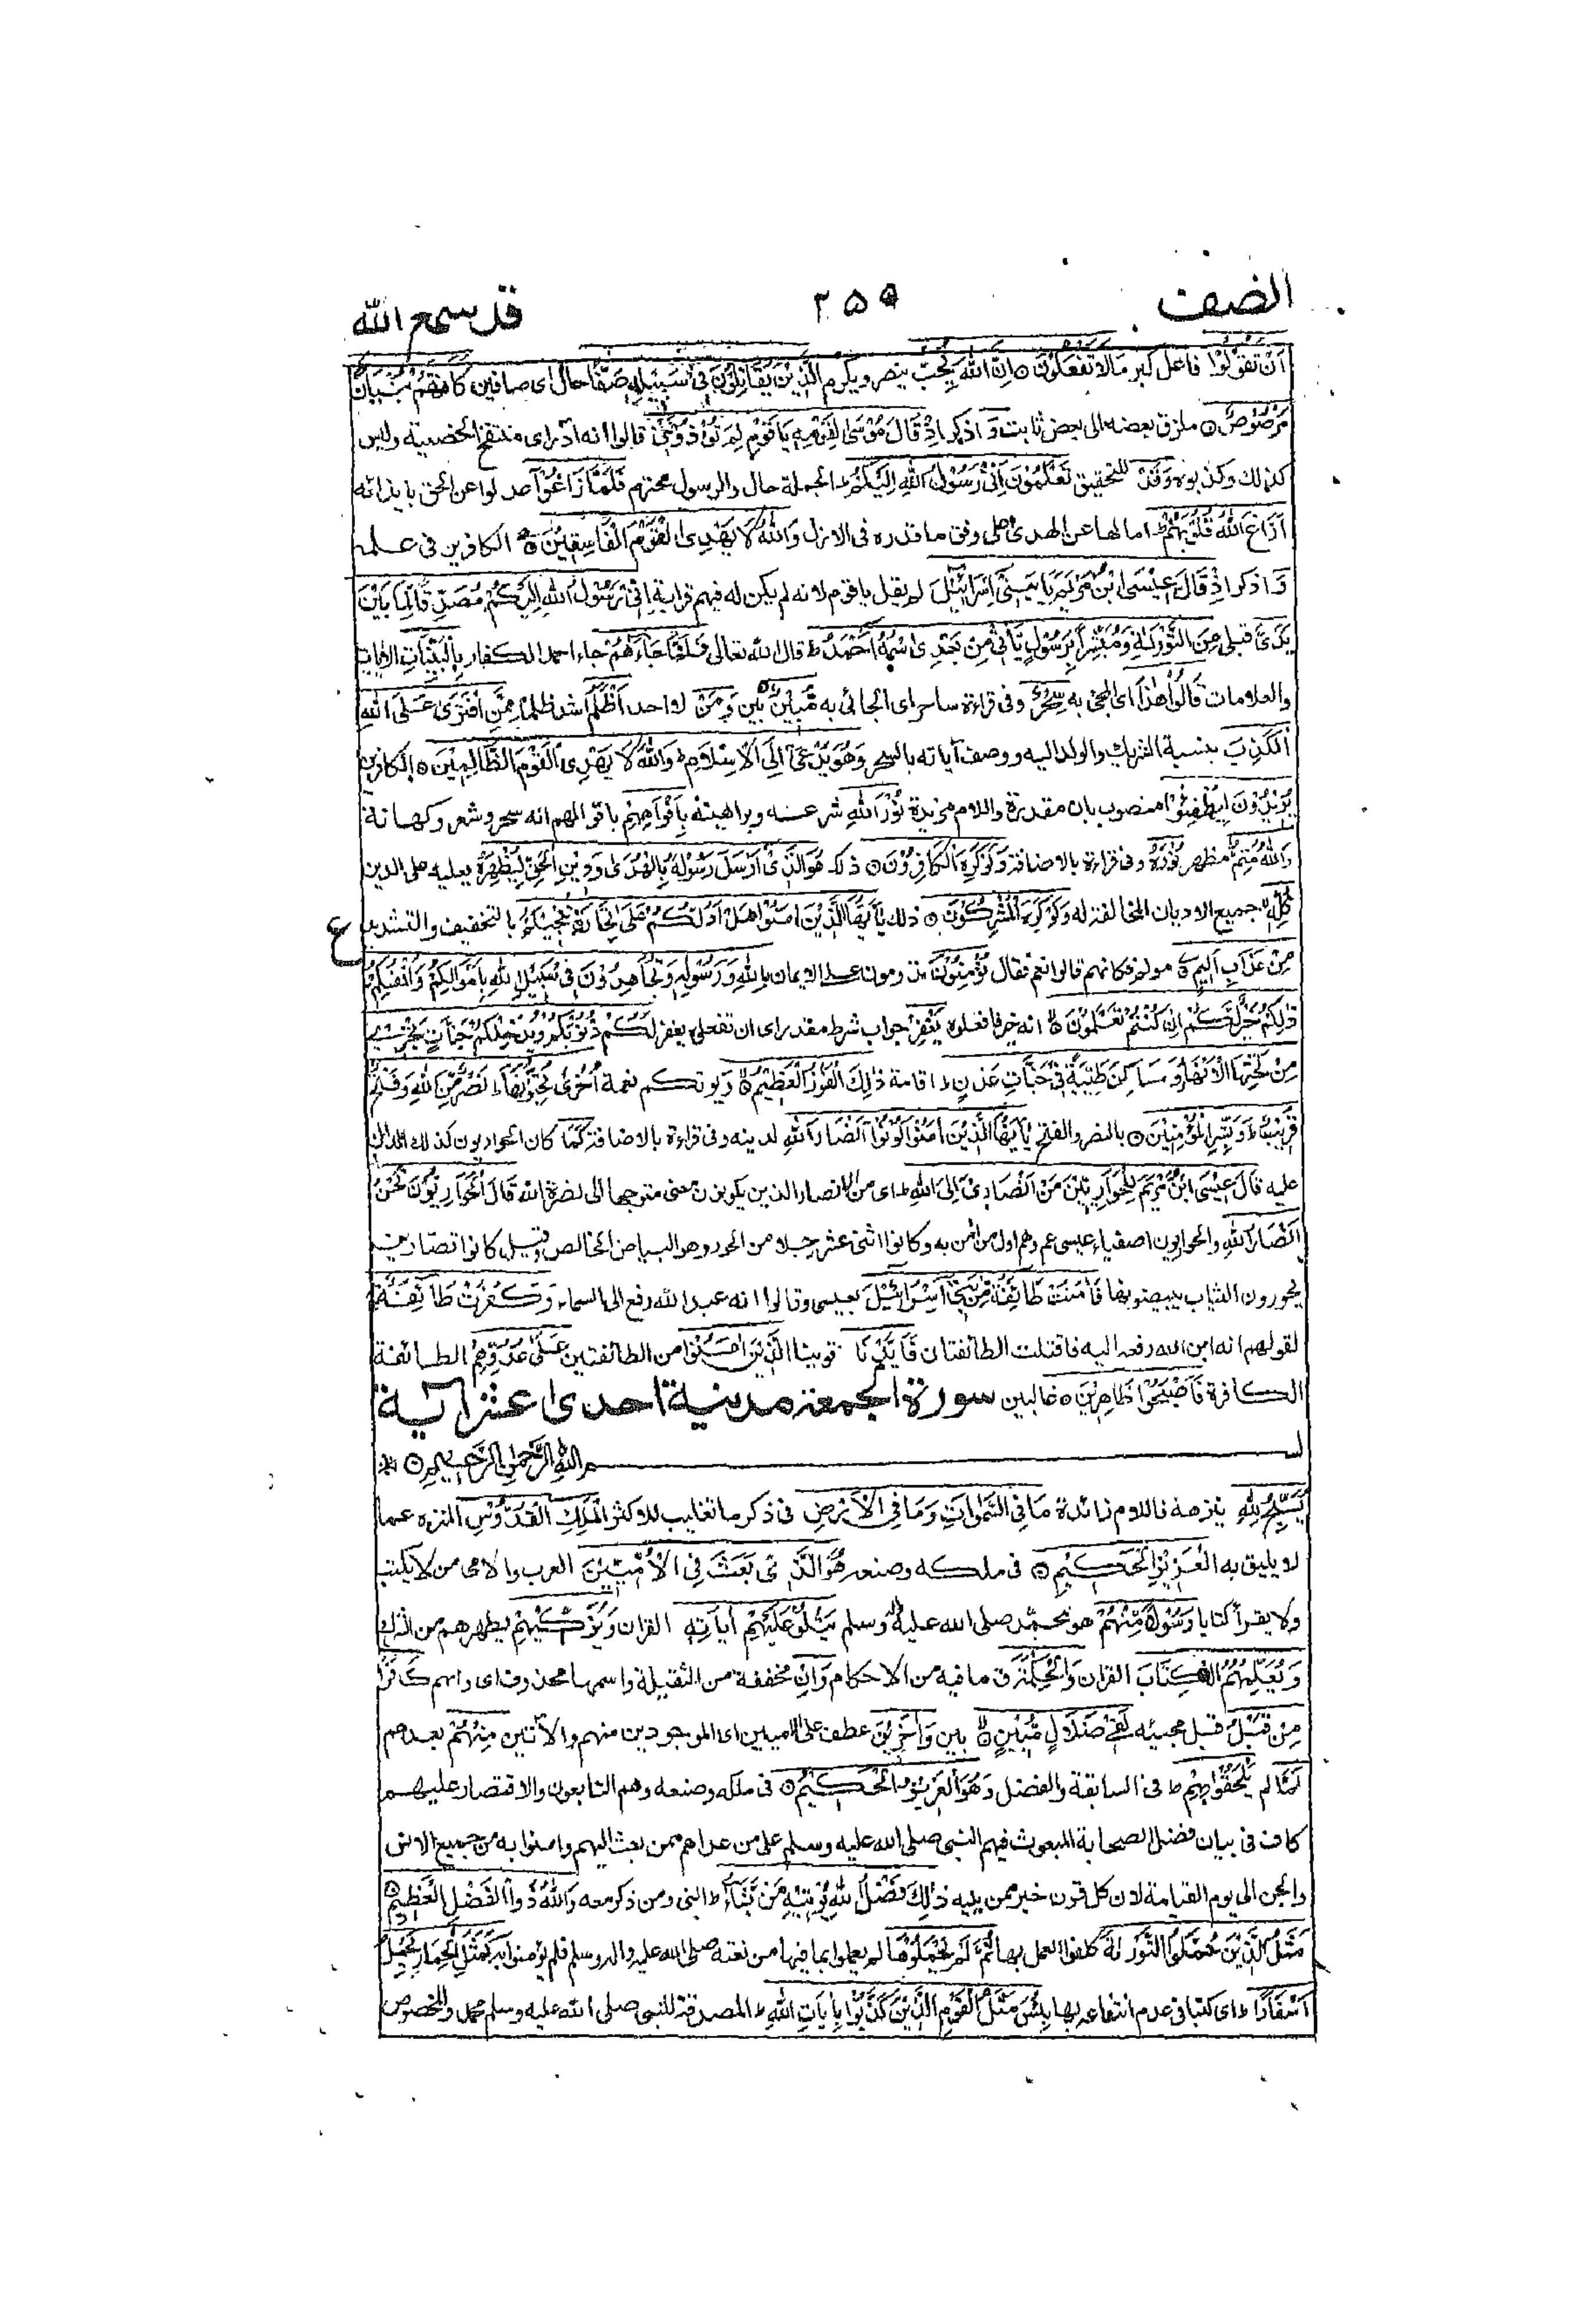 الصف ٢٥٩ قد سمع الله
اَنْ تَقُوْلُوْا فاعل كبر مَالَا تَفْعَلُوْنَ ○ اِنَّ اللهَ يُحِبُّ ينصر ويكرم الَّذِيْنَ يُقَاتِلُوْنَ فِيْ سَبِيْلِهٖ صَفًّا حال اى صافين كَاَنَّهُمْ بُنْيَانٌ
مَّرْصُوْصٌ ○ ملزق بعضه الى بعض ثابت وَ اذكر اِذْ قَالَ مُوْسٰى لِقَوْمِهٖ يَا قَوْمِ لِمَ تُؤْذُوْنَنِيْ قالوا انه ادر اى منتفخ الخصية وليس
كذلك وكذبوه وَقَدْ للتحقيق تَعْلَمُوْنَ اَنِّيْ رَسُوْلُ اللهِ اِلَيْكُمْ ط الجملة حال والرسول محترم فَلَمَّا زَاغُوْا عدلوا عن الحق بايذائه
اَزَاغَ اللهُ قُلُوْبَهُمْ ط امالها عن الهدى على وفق ما قدره فى الازل وَاللهُ لَا يَهْدِى الْقَوْمَ الْفَاسِقِيْنَ ○ الكافرين فى علمه
وَ اذكر اِذْ قَالَ عِيْسَى ابْنُ مَرْيَمَ يَا بَنِيْ اِسْرَائِيْلَ لم يقل يا قوم لانه لم يكن له فيهم قرابة اِنِّيْ رَسُوْلُ اللهِ اِلَيْكُمْ مُصَدِّقًا لِّمَا بَيْنَ
يَدَيَّ قبلى مِنَ التَّوْرٰىةِ وَمُبَشِّرًا بِرَسُوْلٍ يَّأْتِيْ مِنْ بَعْدِى اسْمُهٗ اَحْمَدُ ط قال الله تعالى فَلَمَّا جَاءَهُمْ جاء احمد الكفار بِالْبَيِّنٰتِ الايات
والعلامات قَالُوْا هٰذَا اى المجئ به سِحْرٌ وفى قراءة ساحر اى الجائى به مُّبِيْنٌ ○ بين وَمَنْ لا احد اَظْلَمُ اشد ظلما مِمَّنِ افْتَرٰى عَلَى اللهِ
الْكَذِبَ بنسبة الشريك والولد اليه ووصف آياته بالسحر وَهُوَ يُدْعٰى اِلَى الْاِسْلَامِ ط وَاللهُ لَا يَهْدِى الْقَوْمَ الظَّالِمِيْنَ ○ الكافرين
يُرِيْدُوْنَ لِيُطْفِئُوْا منصوب بان مقدرة واللام مزيدة نُوْرَ اللهِ شرعه وبراهينه بِاَفْوَاهِهِمْ باقوالهم انه سحر وشعر وكهانة
وَاللهُ مُتِمُّ مظهر نُوْرَهٗ وفى قراءة بالاضافة وَلَوْ كَرِهَ الْكَافِرُوْنَ ○ ذلك هُوَ الَّذِيْ اَرْسَلَ رَسُوْلَهٗ بِالْهُدٰى وَدِيْنِ الْحَقِّ لِيُظْهِرَهٗ يعليه على الدين
كُلِّهٖ جميع الاديان المخالفة له وَلَوْ كَرِهَ الْمُشْرِكُوْنَ ○ ذلك يٰاَيُّهَا الَّذِيْنَ اٰمَنُوْا هَلْ اَدُلُّكُمْ عَلٰى تِجَارَةٍ تُنْجِيْكُمْ بالتخفيف والتشديد ع
مِنْ عَذَابٍ اَلِيْمٍ ○ مولم فكانهم قالوا نعم فقال تُؤْمِنُوْنَ تدومون على الايمان بِاللهِ وَرَسُوْلِهٖ وَتُجَاهِدُوْنَ فِيْ سَبِيْلِ اللهِ بِاَمْوَالِكُمْ وَاَنْفُسِكُمْ
ذٰلِكُمْ خَيْرٌ لَّكُمْ اِنْ كُنْتُمْ تَعْلَمُوْنَ ○ انه خير فافعلوه يَغْفِرْ جواب شرط مقدر اى ان تفعلوه يغفر لَكُمْ ذُنُوْبَكُمْ وَيُدْخِلْكُمْ جَنّٰتٍ تَجْرِيْ
مِنْ تَحْتِهَا الْاَنْهٰرُ وَمَسَاكِنَ طَيِّبَةً فِيْ جَنَّاتِ عَدْنٍ ط اقامة ذٰلِكَ الْفَوْزُ الْعَظِيْمُ ○ وَ يوتكم نعمة اُخْرٰى تُحِبُّوْنَهَا ط نَصْرٌ مِّنَ اللهِ وَفَتْحٌ
قَرِيْبٌ ط وَبَشِّرِ الْمُؤْمِنِيْنَ ○ بالنصر والفتح يٰاَيُّهَا الَّذِيْنَ اٰمَنُوْا كُوْنُوْا اَنْصَارَ اللهِ لدينه وفى قراءة بالاضافة كَمَا كان الحواريون كذلك الدال
عليه قَالَ عِيْسَى ابْنُ مَرْيَمَ لِلْحَوَارِيّٖنَ مَنْ اَنْصَارِيْ اِلَى اللهِ ط اى من الانصار الذين يكونون معى متوجها الى نصرة الله قَالَ الْحَوَارِيُّوْنَ نَحْنُ
اَنْصَارُ اللهِ والحواريون اصفياء عيسى عم وهم اول من امن به وكانوا اثنى عشر رجلا من الحور وهو البياض الخالص وقيل كانوا قصارين
يحورون الثياب يبيضونها فَاٰمَنَتْ طَّائِفَةٌ مِّنْ بَنِيْ اِسْرَائِيْلَ بعيسى وقالوا انه عبد الله رفع الى السماء وَكَفَرَتْ طَّائِفَةٌ
لقولهم انه ابن الله رفعه اليه فاقتتلت الطائفتان فَاَيَّدْنَا قوينا الَّذِيْنَ اٰمَنُوْا من الطائفتين عَلٰى عَدُوِّهِمْ الطائفة
الكافرة فَاَصْبَحُوْا ظَاهِرِيْنَ ○ غالبين سورة الجمعة مدنية احدى عشر آية
بسم اللهِ الرَّحْمٰنِ الرَّحِيْمِ ○
يُسَبِّحُ لِلّٰهِ ينزهه فاللام زائدة مَا فِي السَّمٰوَاتِ وَمَا فِي الْاَرْضِ فى ذكر ما تغليب للاكثر الْمَلِكِ الْقُدُّوْسِ المنزه عما
لا يليق به الْعَزِيْزِ الْحَكِيْمِ ○ فى ملكه وصنعه هُوَ الَّذِيْ بَعَثَ فِي الْاُمِّيّٖنَ العرب والامى من لا يكتب
ولا يقرأ كتابا رَسُوْلًا مِّنْهُمْ هو محمد صلى الله عليه وسلم يَتْلُوْا عَلَيْهِمْ اٰيَاتِهٖ القران وَيُزَكِّيْهِمْ يطهرهم من الشرك
وَيُعَلِّمُهُمُ الْكِتَابَ القران وَالْحِكْمَةَ ق ما فيه من الاحكام وَاِنْ مخففة من الثقيلة واسمها محذوف اى وانهم كَانُوْا
مِنْ قَبْلُ قبل مجيئه لَفِيْ ضَلَالٍ مُّبِيْنٍ ○ بين وَاٰخَرِيْنَ عطف على الاميين اى الموجودين منهم والاٰتين مِنْهُمْ بعدهم
لَمَّا لم يَلْحَقُوْا بِهِمْ ط فى السابقة والفضل وَهُوَ الْعَزِيْزُ الْحَكِيْمُ ○ فى ملكه وصنعه وهم التابعون والاقتصار عليهم
كاف فى بيان فضل الصحابة المبعوث فيهم النبى صلى الله عليه وسلم على من عداهم ممن بعث اليهم وامنوا به من جميع الانس
والجن الى يوم القيامة لان كل قرن خير ممن يليه ذٰلِكَ فَضْلُ اللهِ يُؤْتِيْهِ مَنْ يَّشَاءُ ط النبى ومن ذكر معه وَاللهُ ذُو الْفَضْلِ الْعَظِيْمِ ○
مَثَلُ الَّذِيْنَ حُمِّلُوا التَّوْرٰىةَ كلفوا العمل بها ثُمَّ لَمْ يَحْمِلُوْهَا لم يعملوا بما فيها من نعته صلى الله عليه واله وسلم فلم يؤمنوا به كَمَثَلِ الْحِمَارِ يَحْمِلُ
اَسْفَارًا ط اى كتبا فى عدم انتفاعه بها بِئْسَ مَثَلُ الْقَوْمِ الَّذِيْنَ كَذَّبُوْا بِاٰيَاتِ اللهِ ط المصدقة للنبى صلى الله عليه وسلم محمد والمخصوص